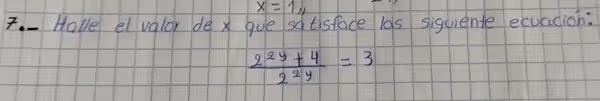 x = 1,,
7.- Halle el valor de x que satisface las siguiente ecuación:
2^{2y} + 4 / 2^{2y} = 3